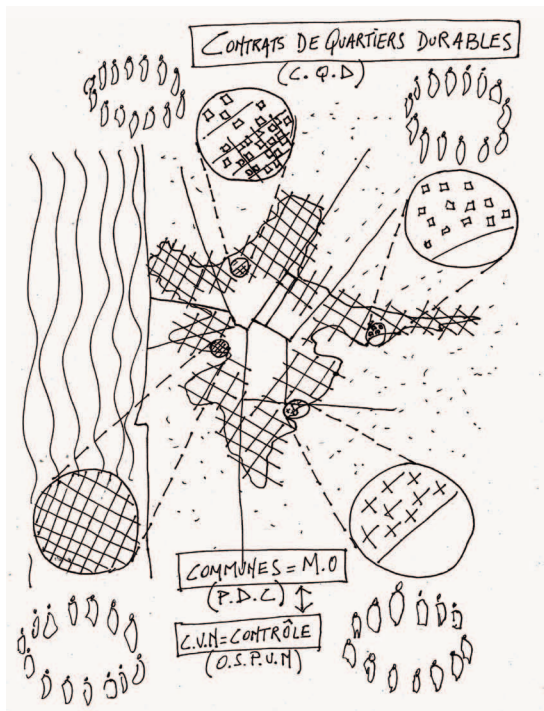 CONTRATS DE QUARTIERS DURABLES
(C.Q.D)
COMMUNES = M.O
(P.D.C)
C.U.N = CONTRÔLE
(O.S.P.U.N)